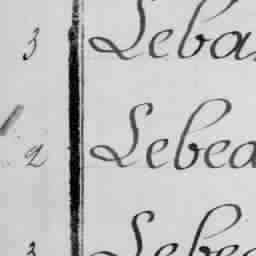 3 Leba
2 Lebea
3 Lebea